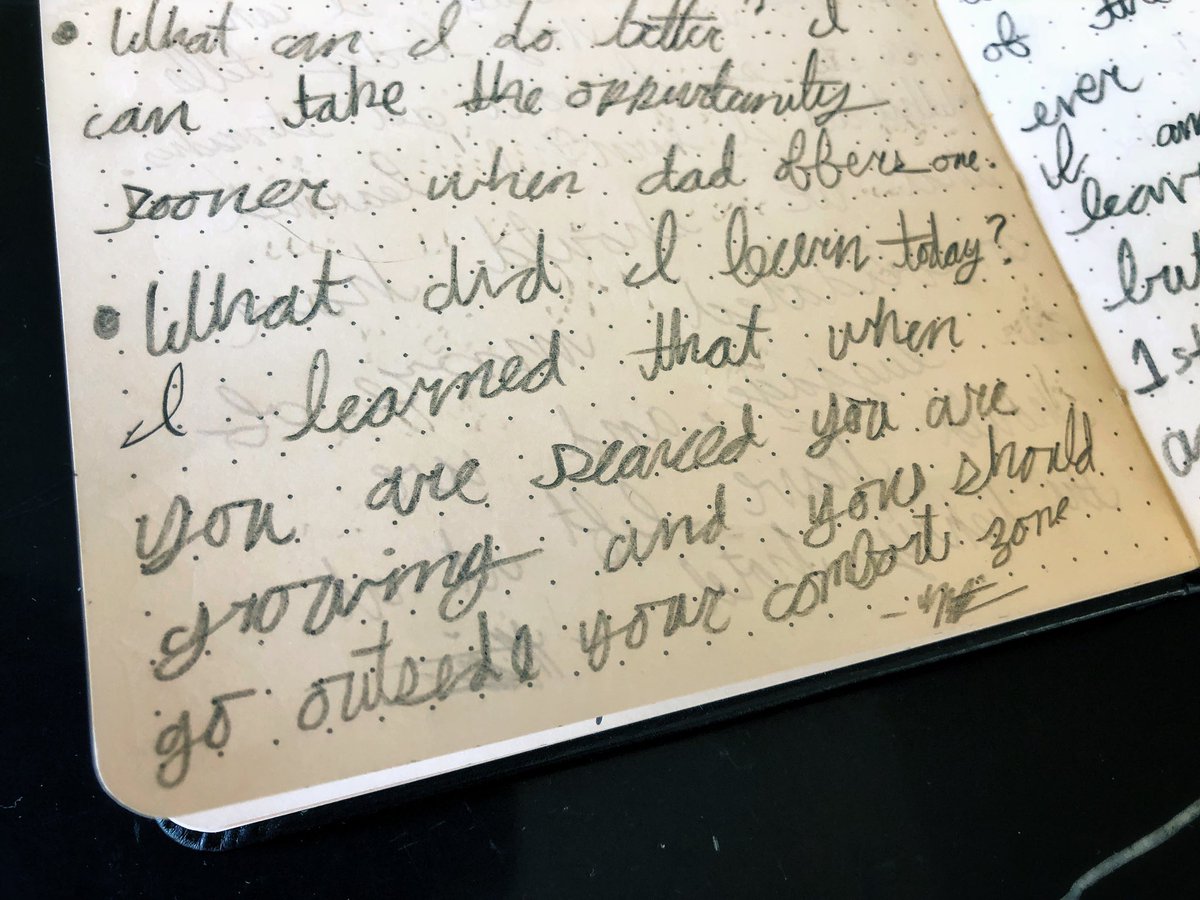 • What can I do better? I
can take the opportunity
sooner when dad offers one.
• What did I learn today?
I learned that when
you are scared you are
growing and you should
go outside your comfort zone
of the
ever
I am
lear
but
1st